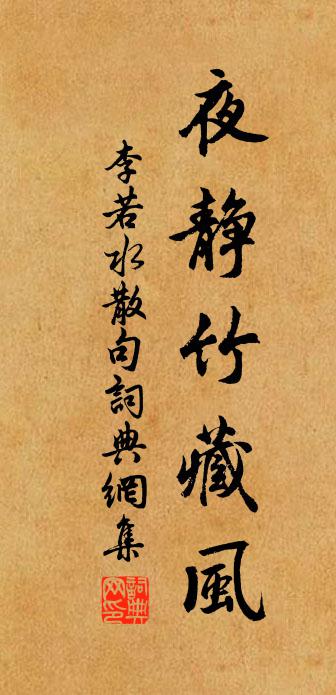 夜静竹藏風
李若水散句詞典網集
詞典網印